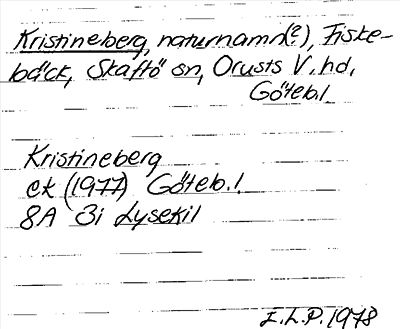 Kristineberg, naturnamn(?), Fiske-
bäck, Skaftö sn, Orusts V. hd,
Göteb.l
Kristineberg
ek (1977) Göteb.l.
8A 3i Lysekil
I.L.P. 1978